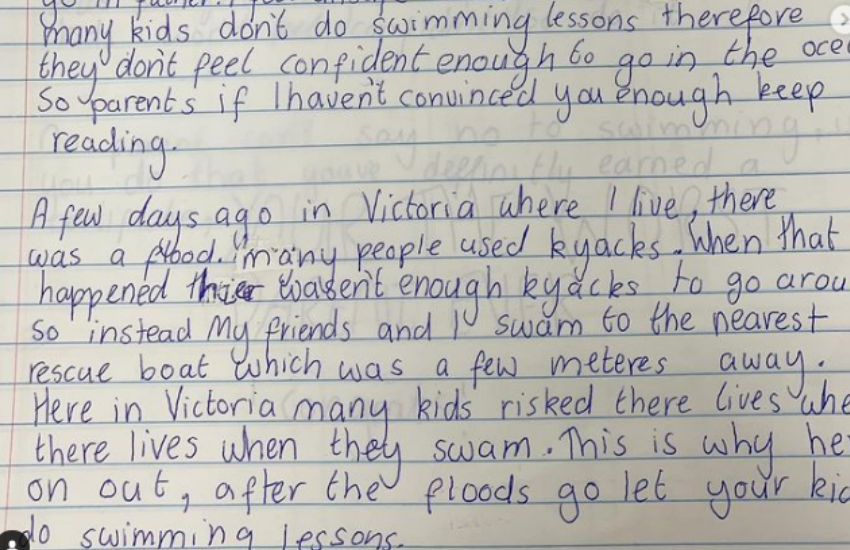 many kids don't do swimming lessons therefore
they don't feel confident enough to go in the oce
So parents if I haven't convinced you enough keep
reading.
A few days ago in Victoria where I live, there
was a flood. many people used kyacks. When that
happened ther wasen't enough kyacks to go arou
so instead My friends and I swam to the nearest
rescue boat which was a few meteres away.
Here in Victoria many kids risked there lives whe
there lives when they swam. This is why he
on out, after the floods go let your kid
do swimming lessons.